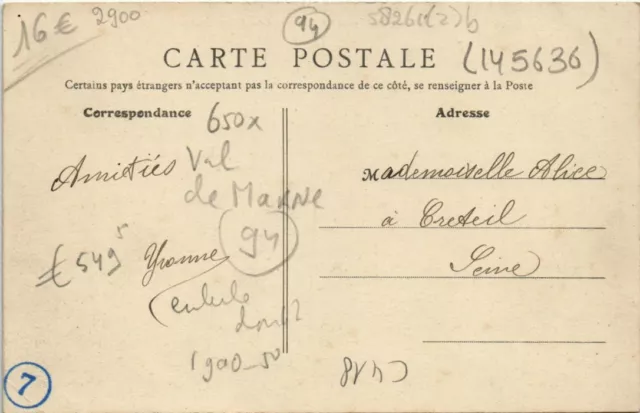 16 € 2900
94
CARTE POSTALE
(145636)
Certains pays étrangers n'acceptant pas la correspondance de ce côté, se renseigner à la Poste
Correspondance
650x
Amitiés
Val
de Marne
94
€ 549 5
Yvonne
1900-50
Adresse
Mademoiselle Alice
à Creteil
Seine
7